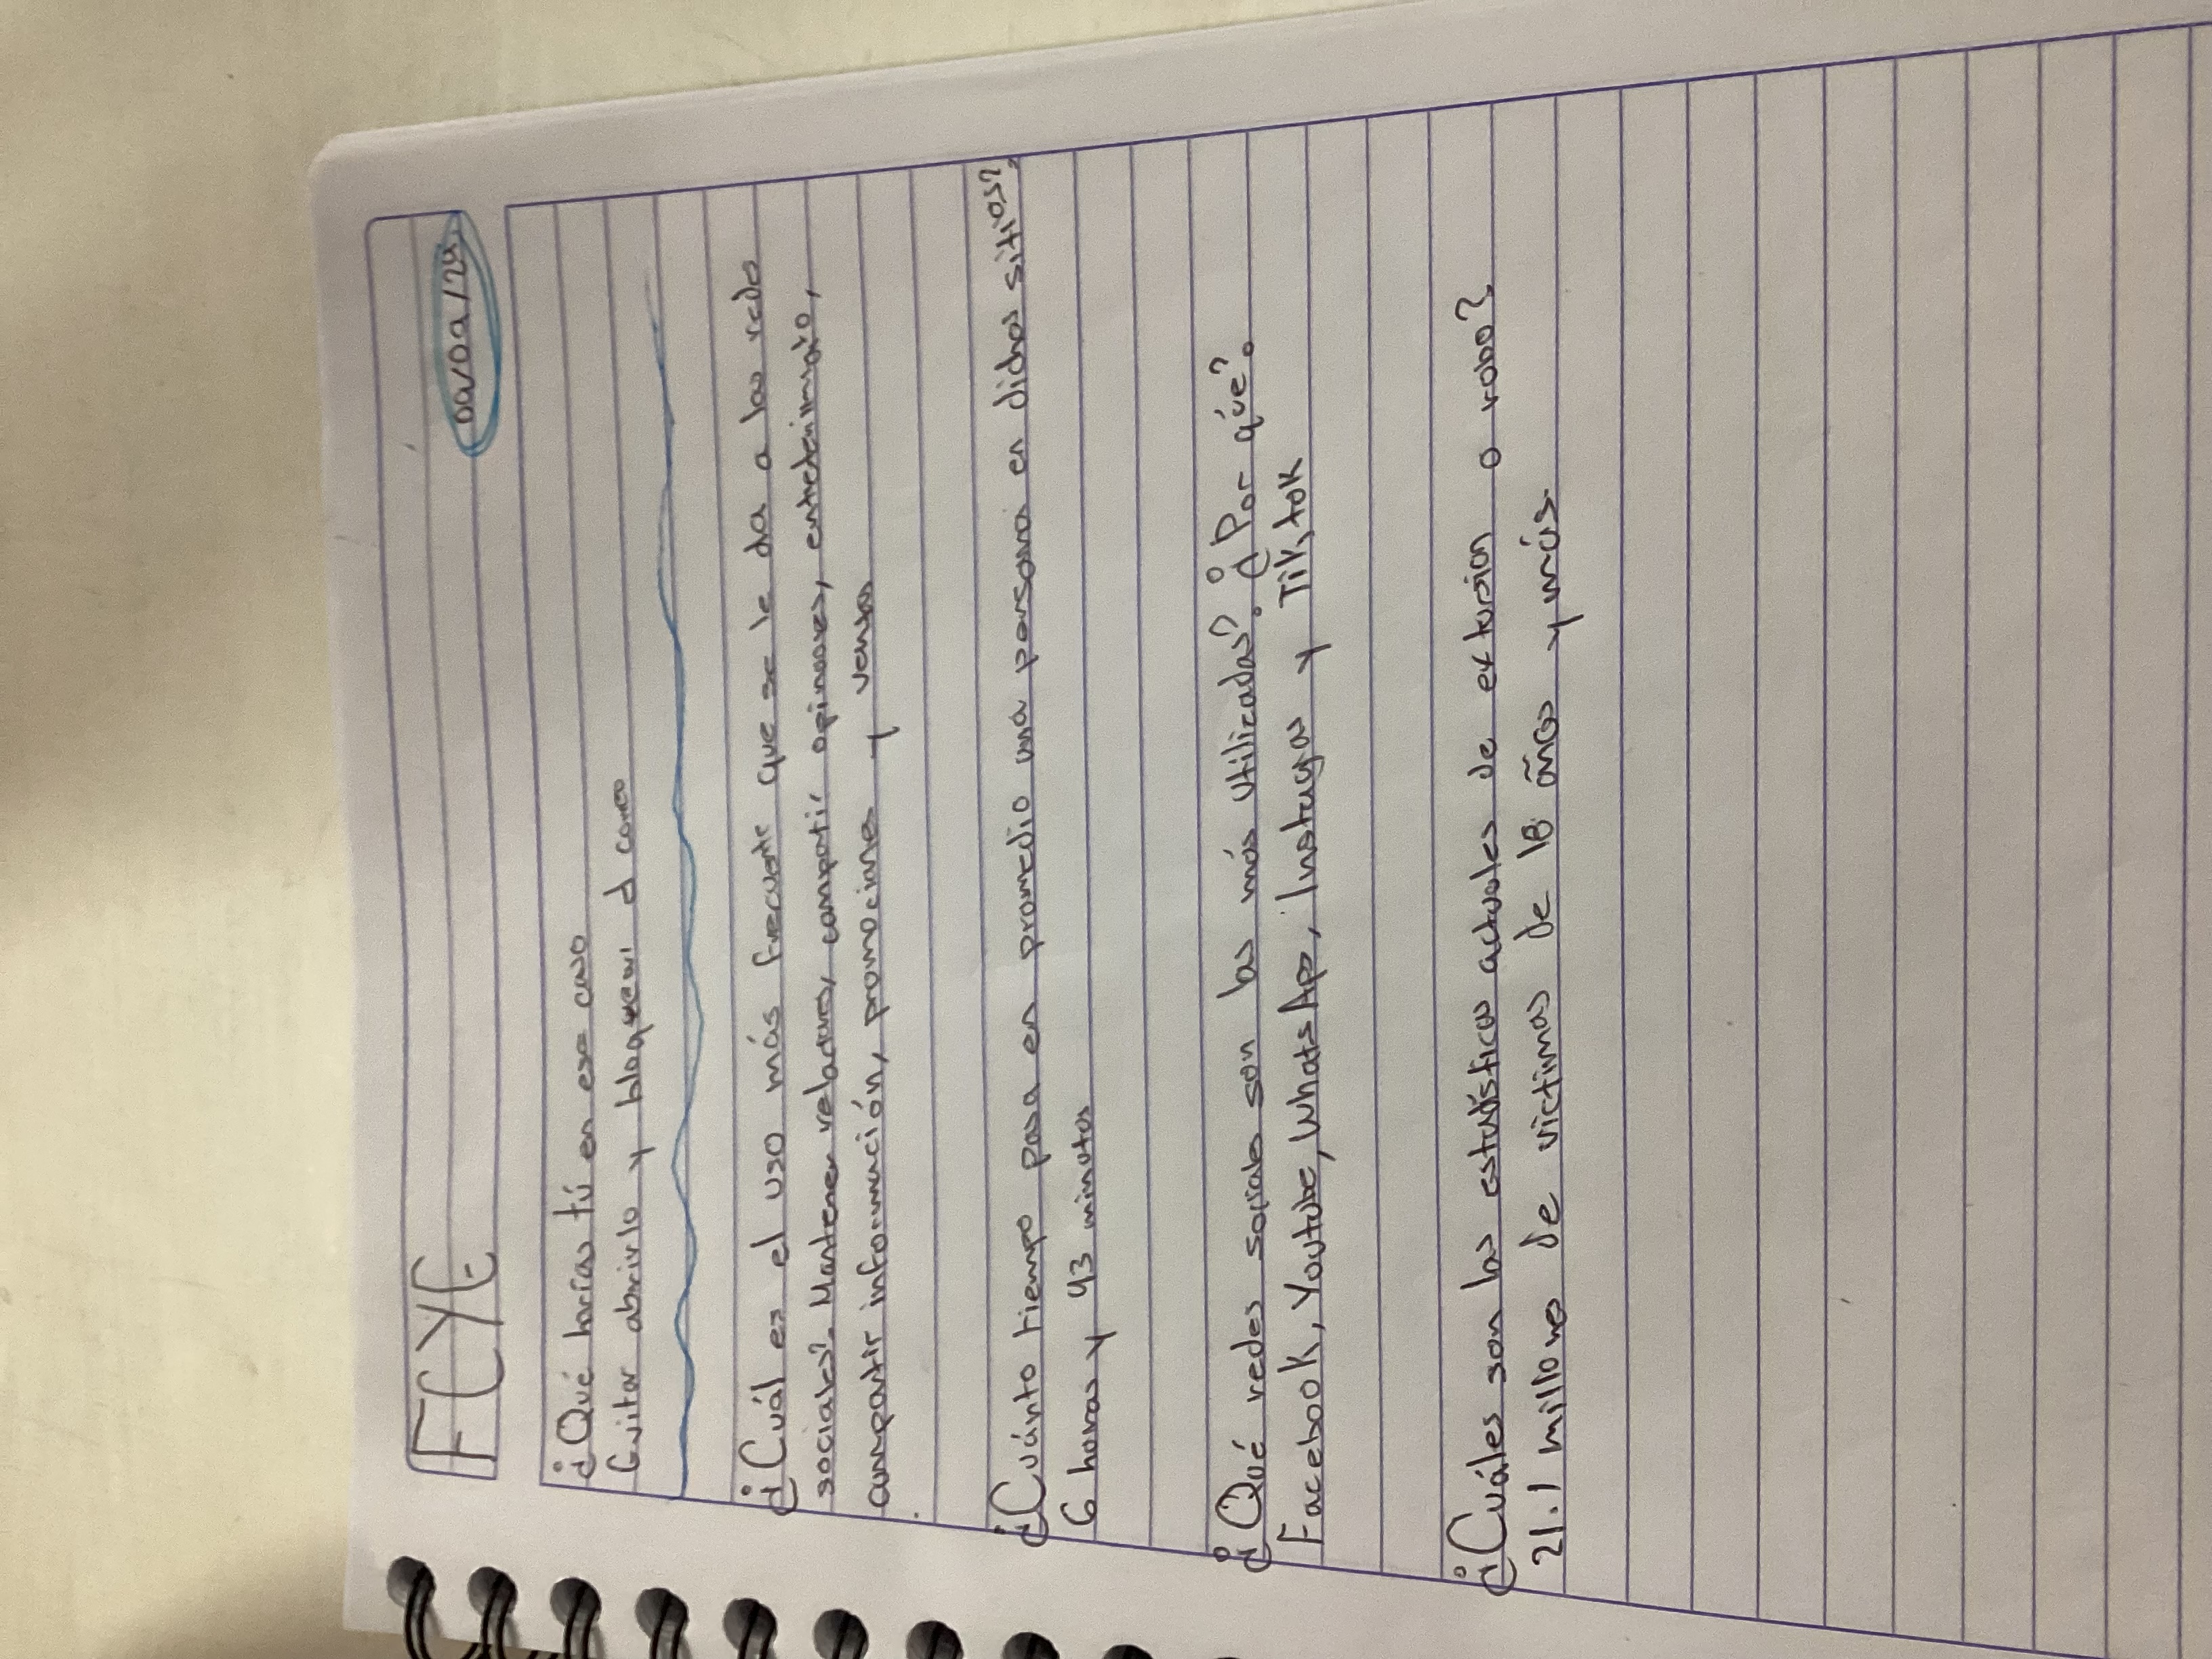 FCYE
09/09/24
¿Qué harías tú en ese caso
Evitar abrirlo y bloquear el correo
¿Cuál es el uso más frecuente que se le da a las redes
sociales?. Mantener relaciones, compatir opiniones, entretenimiento,
compartir información, promocionar y ventas
¿Cuánto tiempo pasa en promedio una persona en dichos sitios?
6 horas y 43 minutos
¿Qué redes sociales son las más utilizadas?. ¿Por qué?.
Facebook, Youtube, WhatsApp, Instagram y Tik tok
¿Cuáles son las estadísticas actuales de extorsion o robo?
21.1 millones de victimas de 18 años y más.